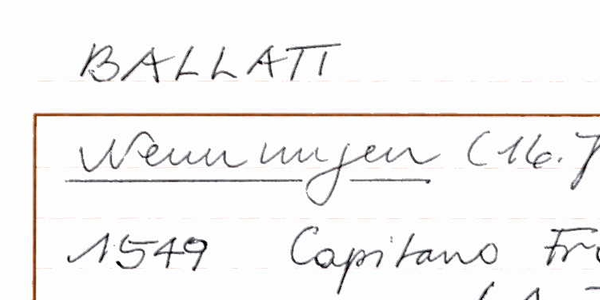 BALLATI
Nennungen (16.J
1549 Capitano Fr